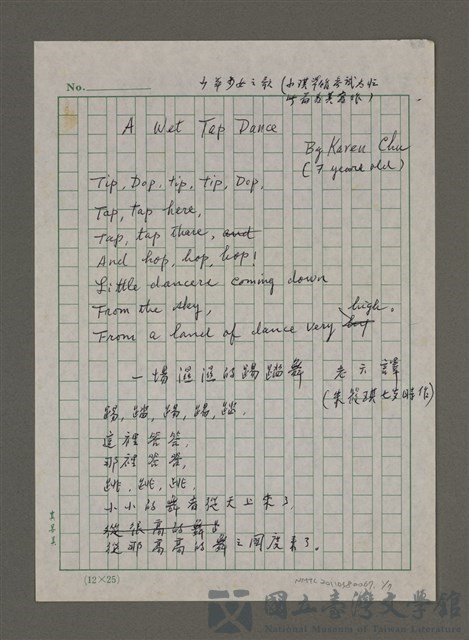 No.
A Wet Tap Dance
By Karen Chu
(7 years old)
Tip, Dop, tip, tip, Dop,
Tap, tap here,
Tap, tap there, and
And hop, hop, hop!
Little dancers coming down
From the sky,
high.
From a land of dance very hay
一場濕濕的踢踏舞 老六譯
(朱筱琪七歲時作)
踢,踏,踢,踢,踏,
這裡答答,
那裡答答,
跳,跳,跳,
小小的舞者從天上來了,
從很高的舞
從那高高的舞之國度來了。
(12×25)
國立臺灣文學館
National Museum of Taiwan Literature